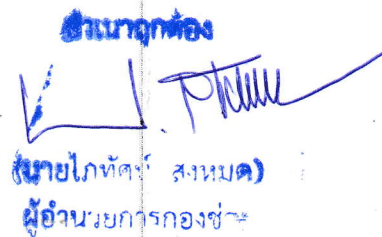 สำเนาถูกต้อง
(นายไภทัศน์ สงหมด)
ผู้อำนวยการกองช่าง